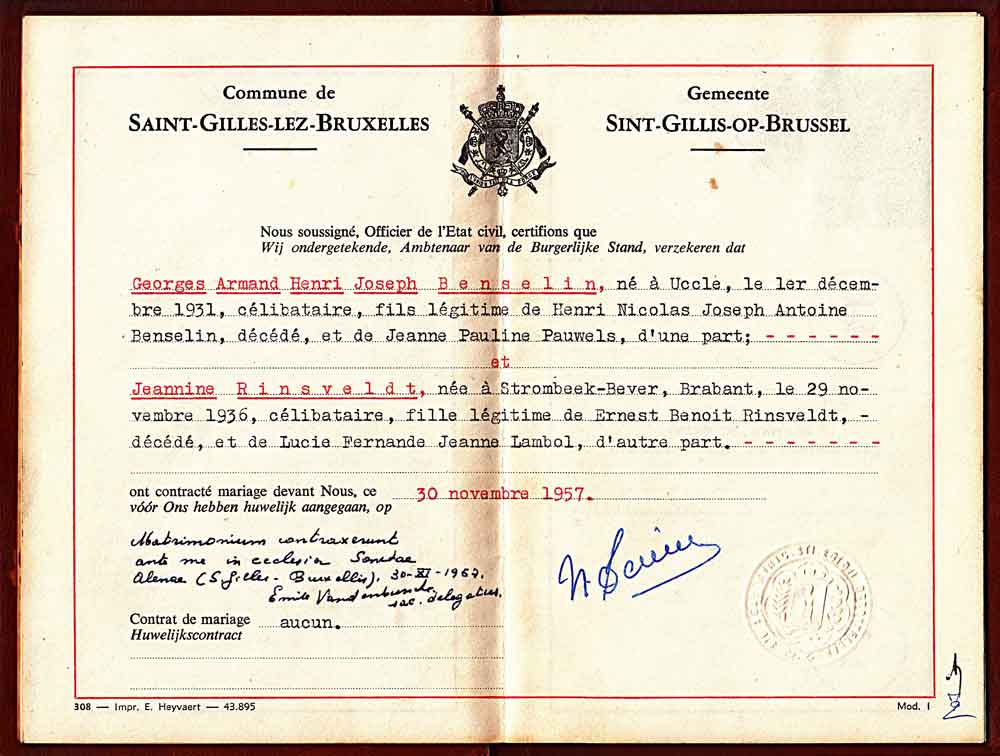 Commune de
SAINT-GILLES-LEZ-BRUXELLES
Gemeente
SINT-GILLIS-OP-BRUSSEL
Nous soussigné, Officier de l'Etat civil, certifions que
Wij ondergetekende, Ambtenaar van de Burgerlijke Stand, verzekeren dat
Georges Armand Henri Joseph Benselin, né à Uccle, le 1er décem-
bre 1931, célibataire, fils légitime de Henri Nicolas Joseph Antoine
Benselin, décédé, et de Jeanne Pauline Pauwels, d'une part; - - - - - -
et
Jeannine Rinsveldt, née à Strombeek-Bever, Brabant, le 29 no-
vembre 1936, célibataire, fille légitime de Ernest Benoit Rinsveldt, -
décédé, et de Lucie Fernande Jeanne Lambol, d'autre part. - - - - - - -
ont contracté mariage devant Nous, ce 30 novembre 1957.
vóór Ons hebben huwelijk aangegaan, op
Matrimonium contraxerunt
ante me in ecclesia Sanctae
Alenae (S. Gilles - Bruxellis), 30-XI-1957.
Emile Vandenbussche
sac. delegatus.
Contrat de mariage aucun.
Huwelijkscontract
308 — Impr. E. Heyvaert — 43.895
Mod. I